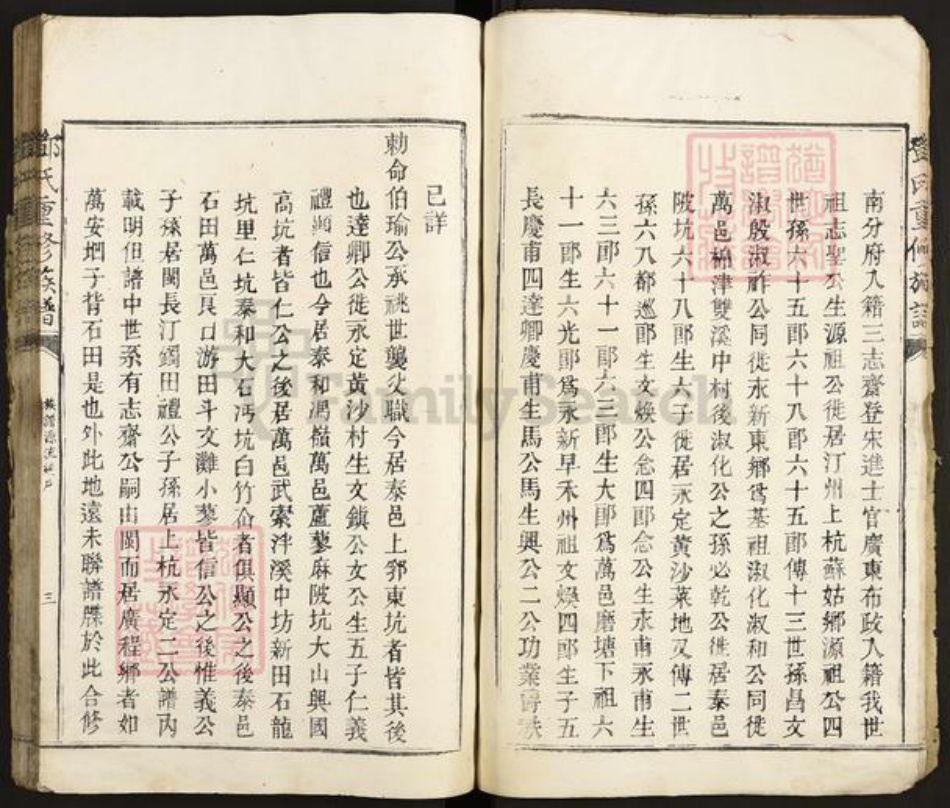 南分府入籍三志齋登宋進士官廣東布政入籍我世
祖志聖公生源祖公徙居汀州上杭蘇姑鄉源祖公四
世孫六十五郎六十八郎六十五郎傳十三世孫昌文
淑殷淑祚公同徙永新東鄉爲基祖淑化淑和公同徙
萬邑棉津雙溪中村後淑化公之孫必乾公徙居泰邑
陂坑六十八郎生六子徙居永定黃沙菜地又傳二世
孫六八都巡郎生文煥公念四郎念公生永甫永甫生
六三郎六十一郎六三郎生大郎爲萬邑磨塘下祖六
十一郎生六光郎爲永新早禾州祖文煥四郎生子五
長慶甫四達卿慶甫生馬公馬生興公二公功業爵秩
已詳
勅命伯瑜公承祧世襲父職今居泰邑上郛東坑者皆其後
也達卿公徙永定黃沙村生文鎮公文公生五子仁義
禮顯信也今居泰和馮嶺萬邑蘆蓼麻陂坑大山興國
高坑者皆仁公之後居萬邑武索泮溪中坊新田石龍
坑里仁坑泰和大石沔坑白竹俱顯公之後泰邑
石田萬邑艮口游田斗文灘小蓼皆信公之後惟義公
子孫居閩長汀鐲田禮公子孫居上杭永定二公譜內
載明但譜中世系有志齋公嗣由閩而居廣程鄉者如
萬安坰子背石田是也外此地遠未聯譜牒於此合修
鄧氏重修族譜
三
鄧氏重修族譜
Family Search